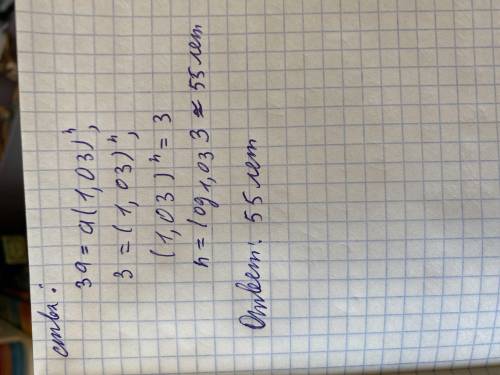 ства:
3a = a(1,03)ⁿ,
3 = (1,03)ⁿ,
(1,03)ⁿ = 3
n = log₁,₀₃ 3 ≈ 55 лет
Ответ: 55 лет